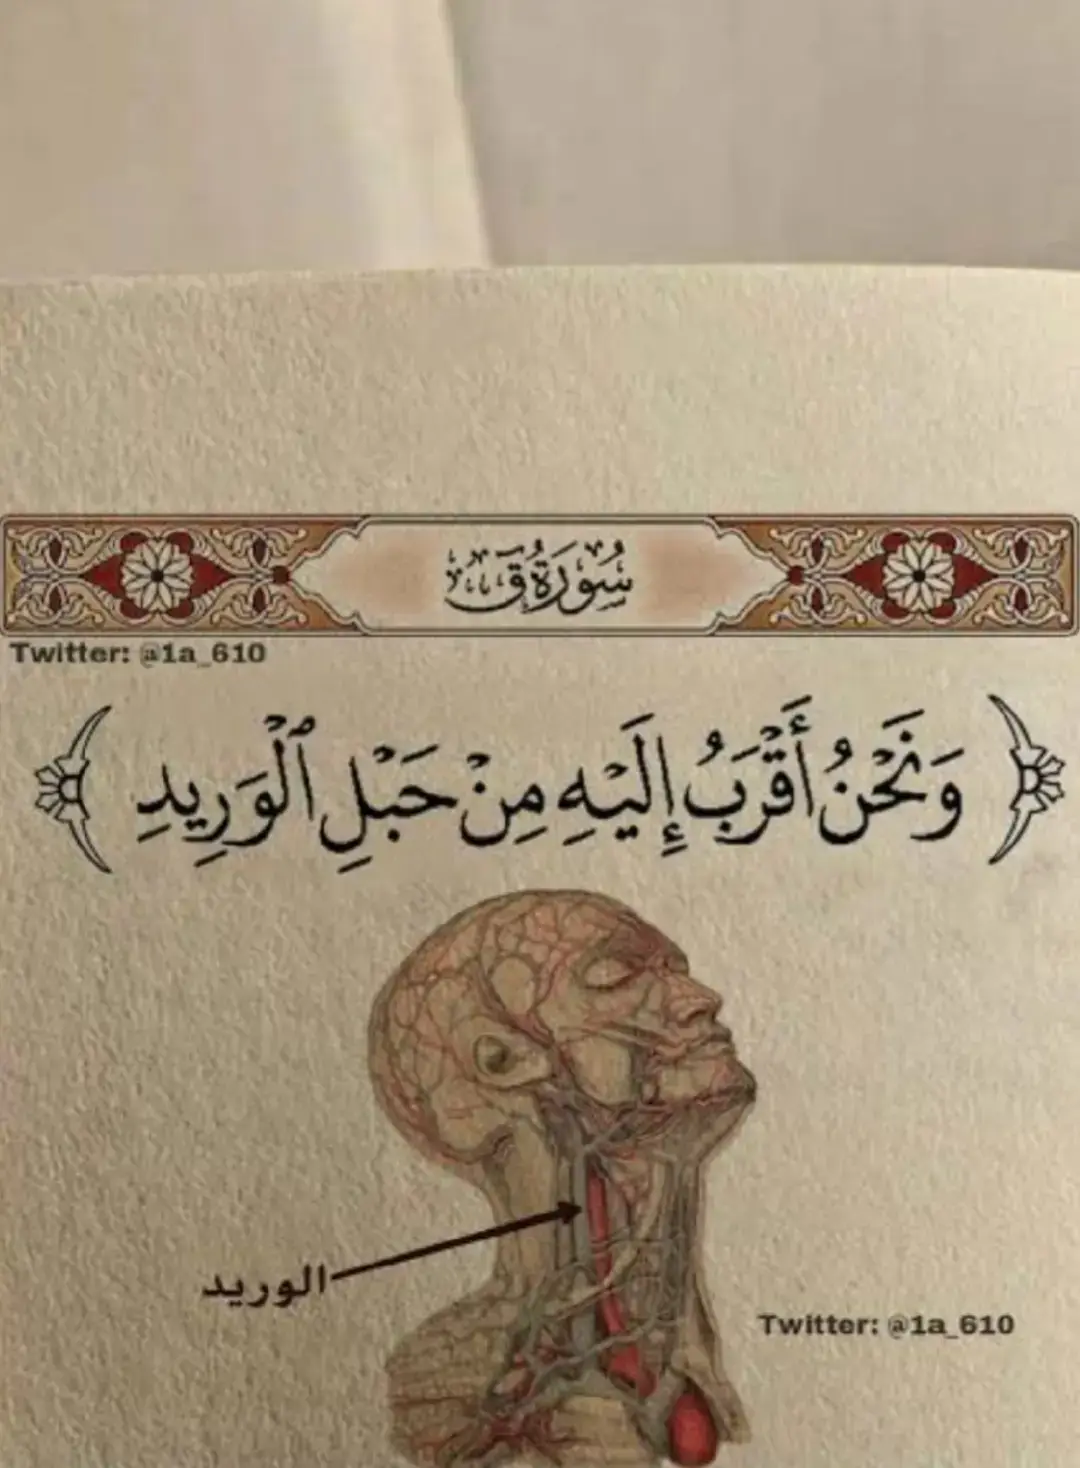 سُورَةُ ق
Twitter: @1a_610
﴿وَنَحْنُ أَقْرَبُ إِلَيْهِ مِنْ حَبْلِ ٱلْوَرِيدِ﴾
الوريد
Twitter: @1a_610